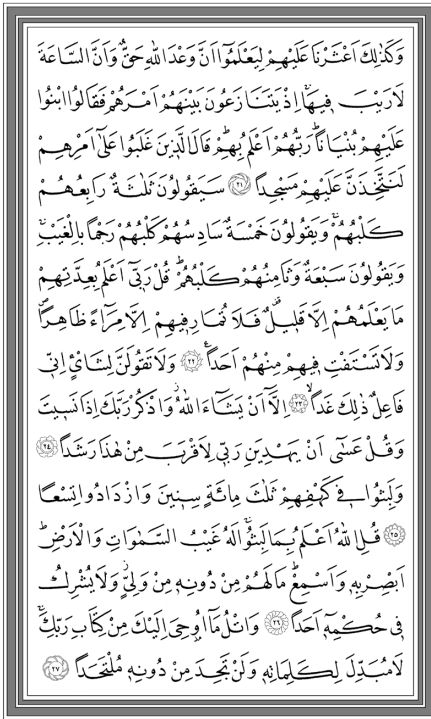 وَكَذٰلِكَ اَعْثَرْنَا عَلَيْهِمْ لِيَعْلَمُٓوا اَنَّ وَعْدَ اللّٰهِ حَقٌّ وَاَنَّ السَّاعَةَ
لَا رَيْبَ فٖيهَاۚ اِذْ يَتَنَازَعُونَ بَيْنَهُمْ اَمْرَهُمْ فَقَالُوا ابْنُوا
عَلَيْهِمْ بُنْيَانًاۜ رَبُّهُمْ اَعْلَمُ بِهِمْۜ قَالَ الَّذٖينَ غَلَبُوا عَلٰٓى اَمْرِهِمْ
لَنَتَّخِذَنَّ عَلَيْهِمْ مَسْجِدًا ﴿٢١﴾ سَيَقُولُونَ ثَلٰثَةٌ رَابِعُهُمْ
كَلْبُهُمْۚ وَيَقُولُونَ خَمْسَةٌ سَادِسُهُمْ كَلْبُهُمْ رَجْمًا بِالْغَيْبِۚ
وَيَقُولُونَ سَبْعَةٌ وَثَامِنُهُمْ كَلْبُهُمْۜ قُلْ رَبّٖٓي اَعْلَمُ بِعِدَّتِهِمْ
مَا يَعْلَمُهُمْ اِلَّا قَلٖيلٌ۠ فَلَا تُمَارِ فٖيهِمْ اِلَّا مِرَٓاءً ظَاهِرًاۖ
وَلَا تَسْتَفْتِ فٖيهِمْ مِنْهُمْ اَحَدًا۟ ﴿٢٢﴾ وَلَا تَقُولَنَّ لِشَا۬يْءٍ اِنّٖي
فَاعِلٌ ذٰلِكَ غَدًاۙ ﴿٢٣﴾ اِلَّٓا اَنْ يَشَٓاءَ اللّٰهُۘ وَاذْكُرْ رَبَّكَ اِذَا نَسٖيتَ
وَقُلْ عَسٰٓى اَنْ يَهْدِيَنِ رَبّٖي لِاَقْرَبَ مِنْ هٰذَا رَشَدًا ﴿٢٤﴾
وَلَبِثُوا فٖي كَهْفِهِمْ ثَلٰثَ مِائَةٍ سِنٖينَ وَازْدَادُوا تِسْعًا
﴿٢٥﴾ قُلِ اللّٰهُ اَعْلَمُ بِمَا لَبِثُواۚ لَهُ غَيْبُ السَّمٰوَاتِ وَالْاَرْضِۜ
اَبْصِرْ بِهٖ وَاَسْمِعْۜ مَا لَهُمْ مِنْ دُونِهٖ مِنْ وَلِيٍّۘ وَلَا يُشْرِكُ
فٖي حُكْمِهٖٓ اَحَدًا ﴿٢٦﴾ وَاتْلُ مَٓا اُو۫حِيَ اِلَيْكَ مِنْ كِتَابِ رَبِّكَۚ
لَا مُبَدِّلَ لِكَلِمَاتِهٖ وَلَنْ تَجِدَ مِنْ دُونِهٖ مُلْتَحَدًا ﴿٢٧﴾